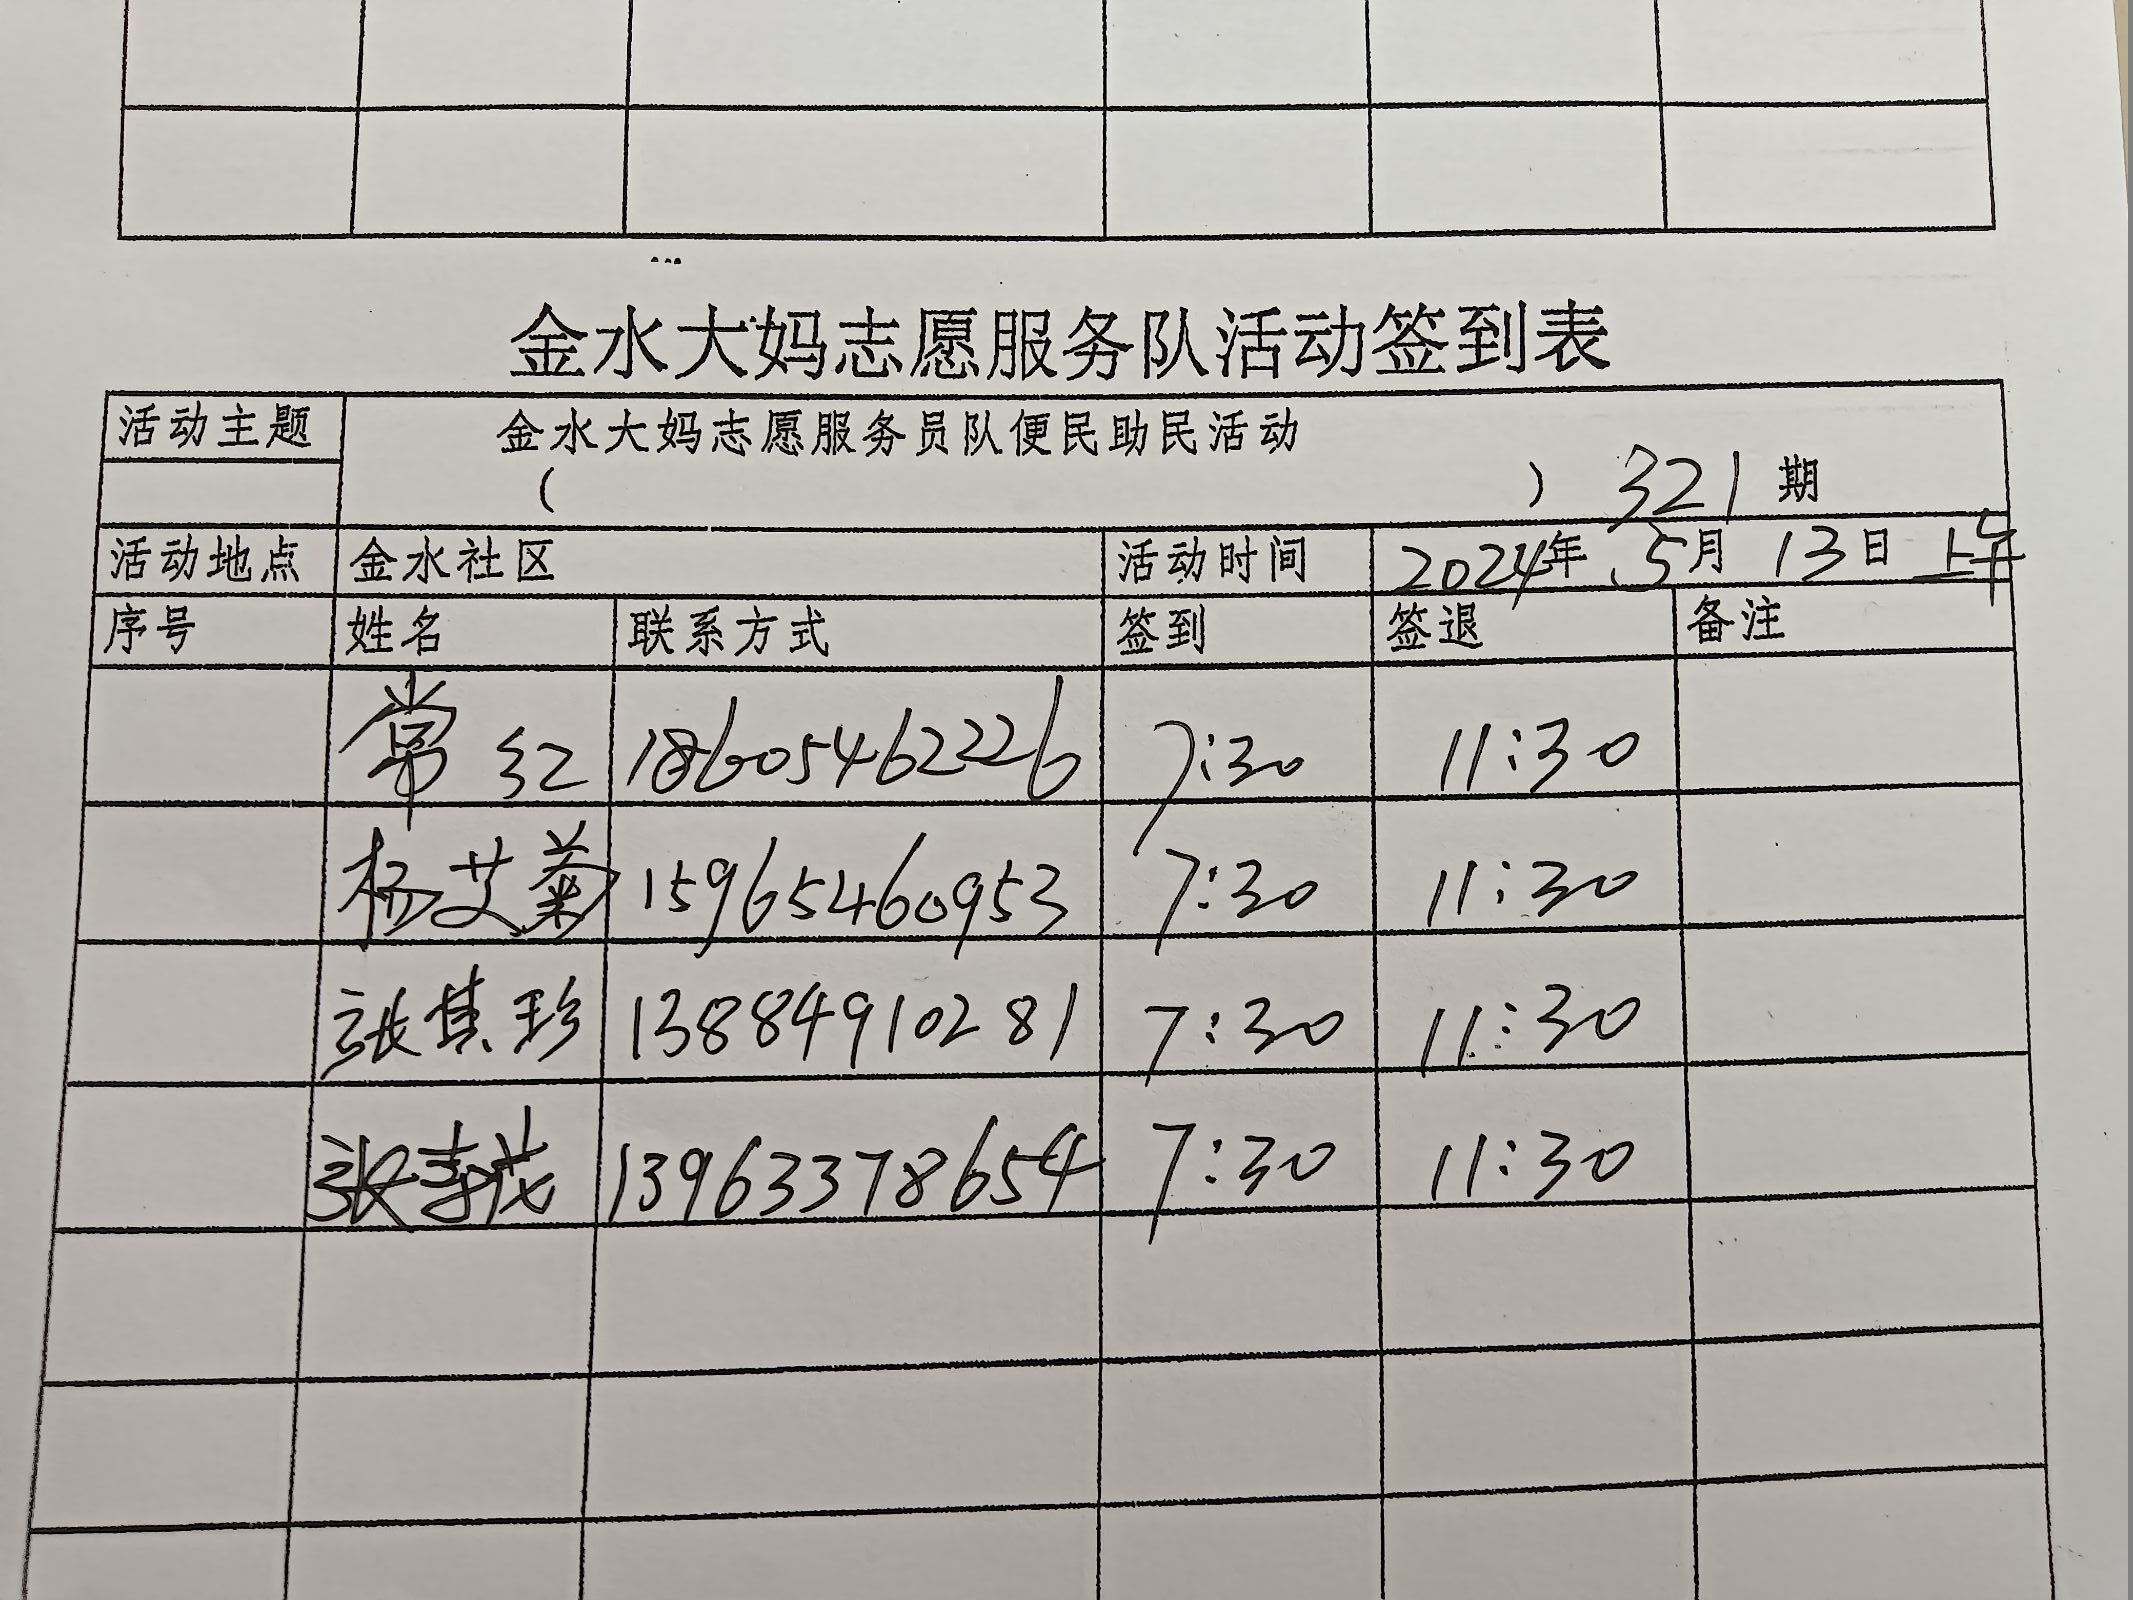 金水大妈志愿服务队活动签到表
活动主题 金水大妈志愿服务员队便民助民活动
( ) 321期
活动地点 金水社区 活动时间 2024年 5月 13日 上午
序号 姓名 联系方式 签到 签退 备注
常红 18605462226 7:30 11:30
杨艾菊 15965460953 7:30 11:30
张其珍 13884910281 7:30 11:30
张春茂 13963378654 7:30 11:30